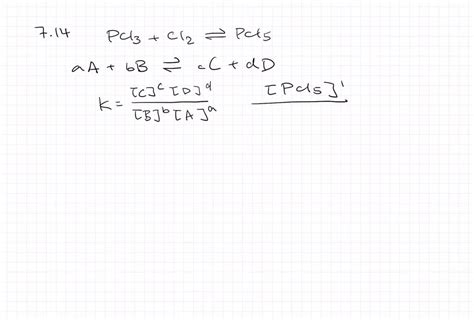 7.14 PCl3 + Cl2 ⇌ PCl5
aA + bB ⇌ cC + dD
K = [C]^c [D]^d / [B]^b [A]^a [PCl5]^1